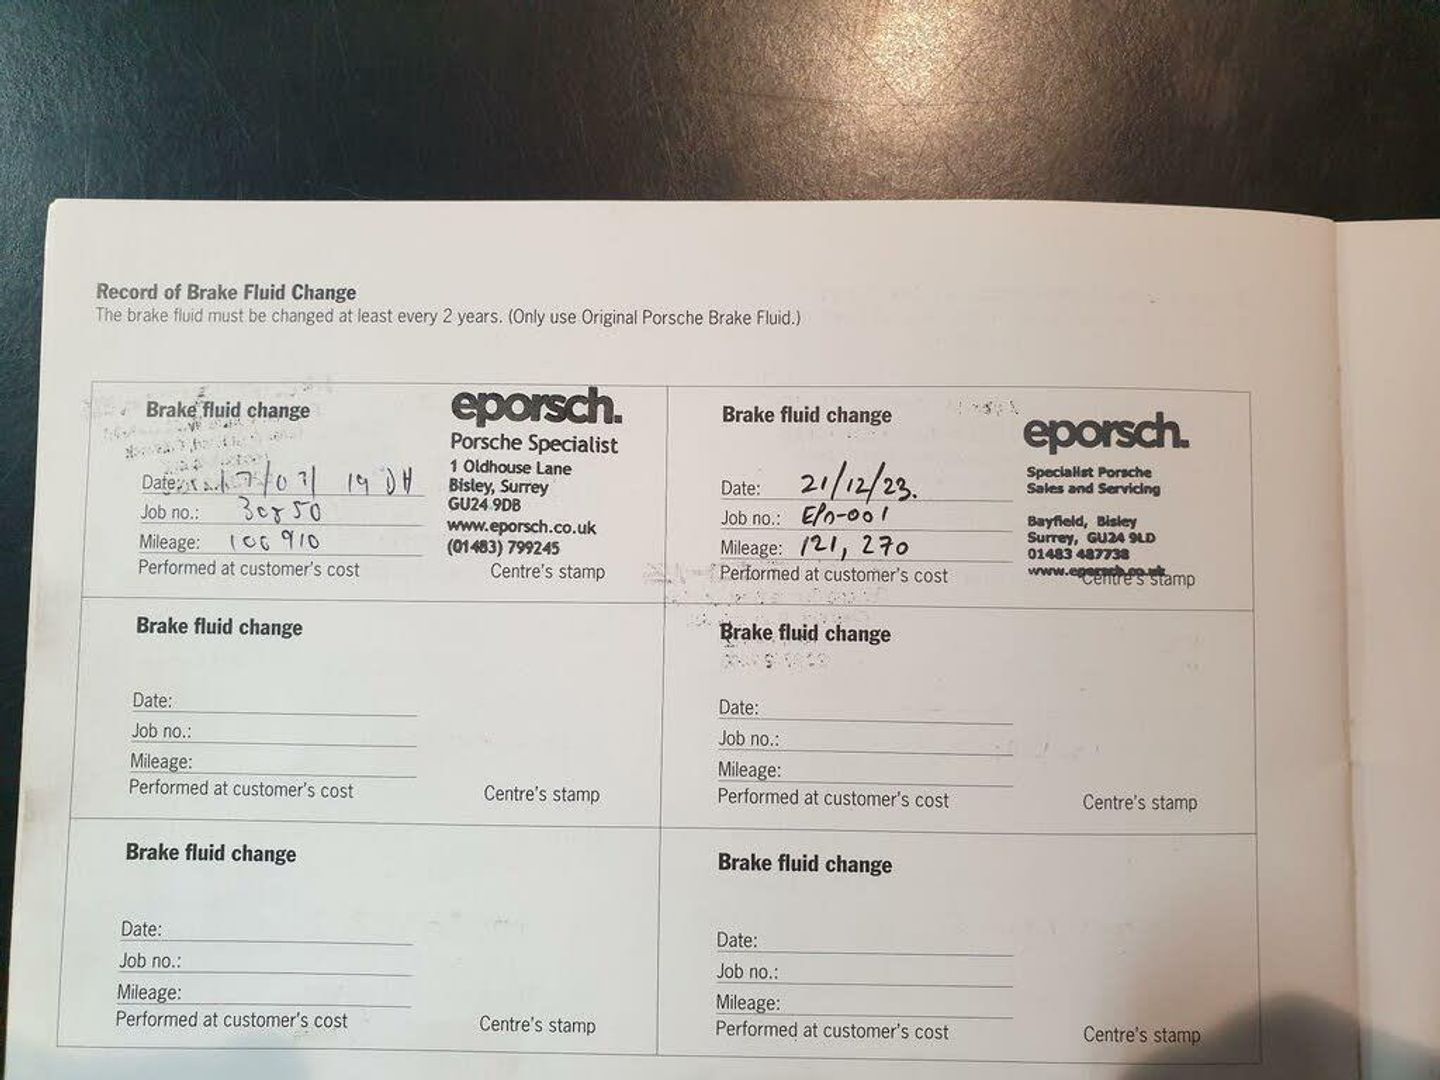 Record of Brake Fluid Change
The brake fluid must be changed at least every 2 years. (Only use Original Porsche Brake Fluid.)
Brake fluid change
Date: 17/07/ 19 DH
Job no.: 30850
Mileage: 106 910
Performed at customer's cost
eporsch.
Porsche Specialist
1 Oldhouse Lane
Bisley, Surrey
GU24 9DB
www.eporsch.co.uk
(01483) 799245
Centre's stamp
Brake fluid change
Date: 21/12/23.
Job no.:
Mileage: 121, 270
Performed at customer's cost
eporsch.
Specialist Porsche
Sales and Servicing
Bayfield, Bisley
Surrey, GU24 9LD
01483 487738
www.eporsch.co.uk
Centre's stamp
Brake fluid change
Date:
Job no.:
Mileage:
Performed at customer's cost
Centre's stamp
Brake fluid change
Date:
Job no.:
Mileage:
Performed at customer's cost
Centre's stamp
Brake fluid change
Date:
Job no.:
Mileage:
Performed at customer's cost
Centre's stamp
Brake fluid change
Date:
Job no.:
Mileage:
Performed at customer's cost
Centre's stamp